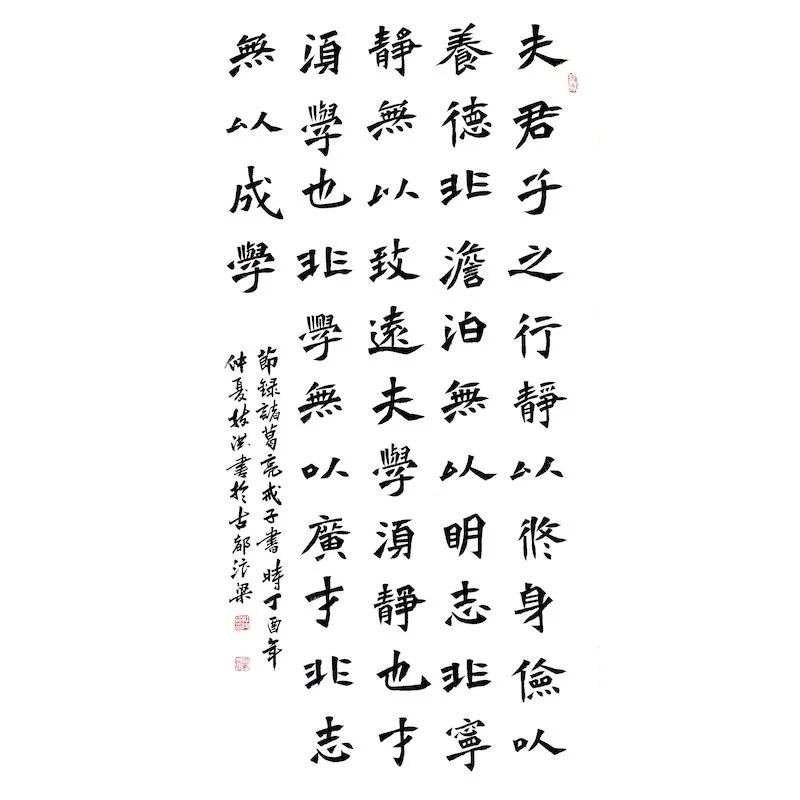 夫君子之行靜以修身儉以
養德非澹泊無以明志非寧
靜無以致遠夫學須靜也才
須學也非學無以廣才非志
無以成學
節録諸葛亮戒子書時丁酉年
仲夏洪書於古都汴梁